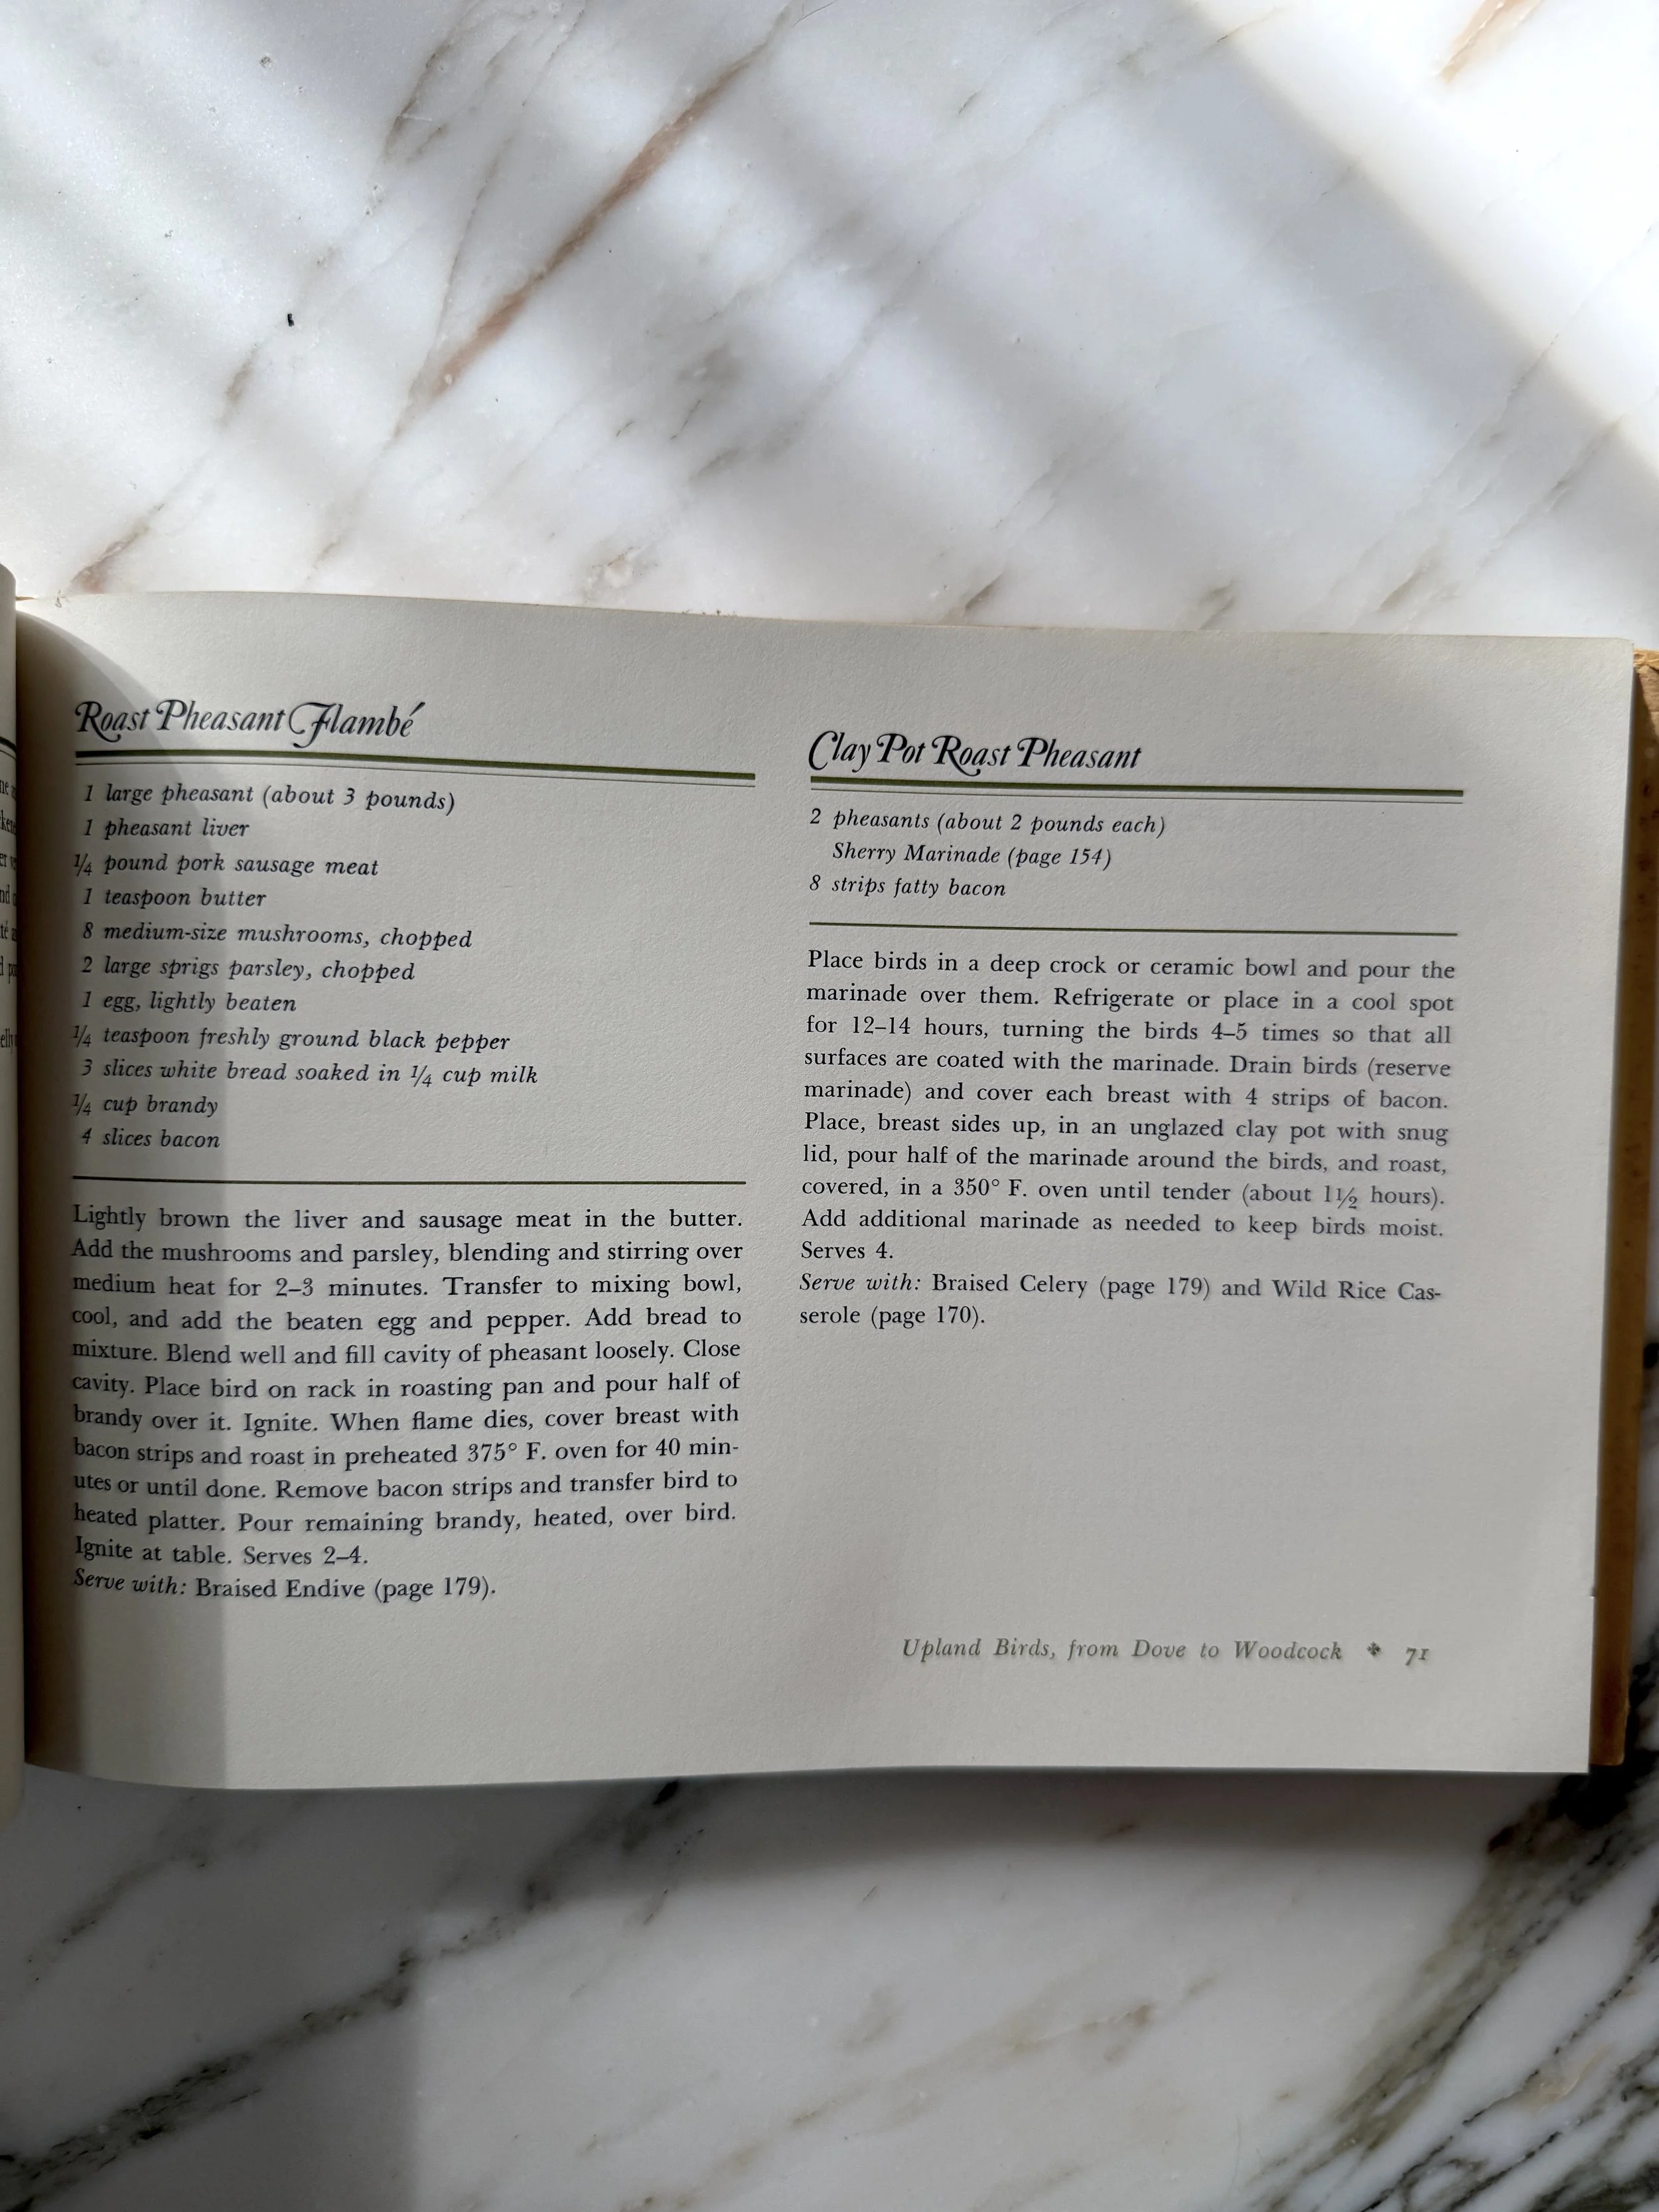 Roast Pheasant Flambé
1 large pheasant (about 3 pounds)
1 pheasant liver
1/4 pound pork sausage meat
1 teaspoon butter
8 medium-size mushrooms, chopped
2 large sprigs parsley, chopped
1 egg, lightly beaten
1/4 teaspoon freshly ground black pepper
3 slices white bread soaked in 1/4 cup milk
1/4 cup brandy
4 slices bacon
Lightly brown the liver and sausage meat in the butter.
Add the mushrooms and parsley, blending and stirring over
medium heat for 2–3 minutes. Transfer to mixing bowl,
cool, and add the beaten egg and pepper. Add bread to
mixture. Blend well and fill cavity of pheasant loosely. Close
cavity. Place bird on rack in roasting pan and pour half of
brandy over it. Ignite. When flame dies, cover breast with
bacon strips and roast in preheated 375° F. oven for 40 min-
utes or until done. Remove bacon strips and transfer bird to
heated platter. Pour remaining brandy, heated, over bird.
Ignite at table. Serves 2–4.
Serve with: Braised Endive (page 179).
Clay Pot Roast Pheasant
2 pheasants (about 2 pounds each)
Sherry Marinade (page 154)
8 strips fatty bacon
Place birds in a deep crock or ceramic bowl and pour the
marinade over them. Refrigerate or place in a cool spot
for 12–14 hours, turning the birds 4–5 times so that all
surfaces are coated with the marinade. Drain birds (reserve
marinade) and cover each breast with 4 strips of bacon.
Place, breast sides up, in an unglazed clay pot with snug
lid, pour half of the marinade around the birds, and roast,
covered, in a 350° F. oven until tender (about 1 1/2 hours).
Add additional marinade as needed to keep birds moist.
Serves 4.
Serve with: Braised Celery (page 179) and Wild Rice Cas-
serole (page 170).
Upland Birds, from Dove to Woodcock ✤ 71